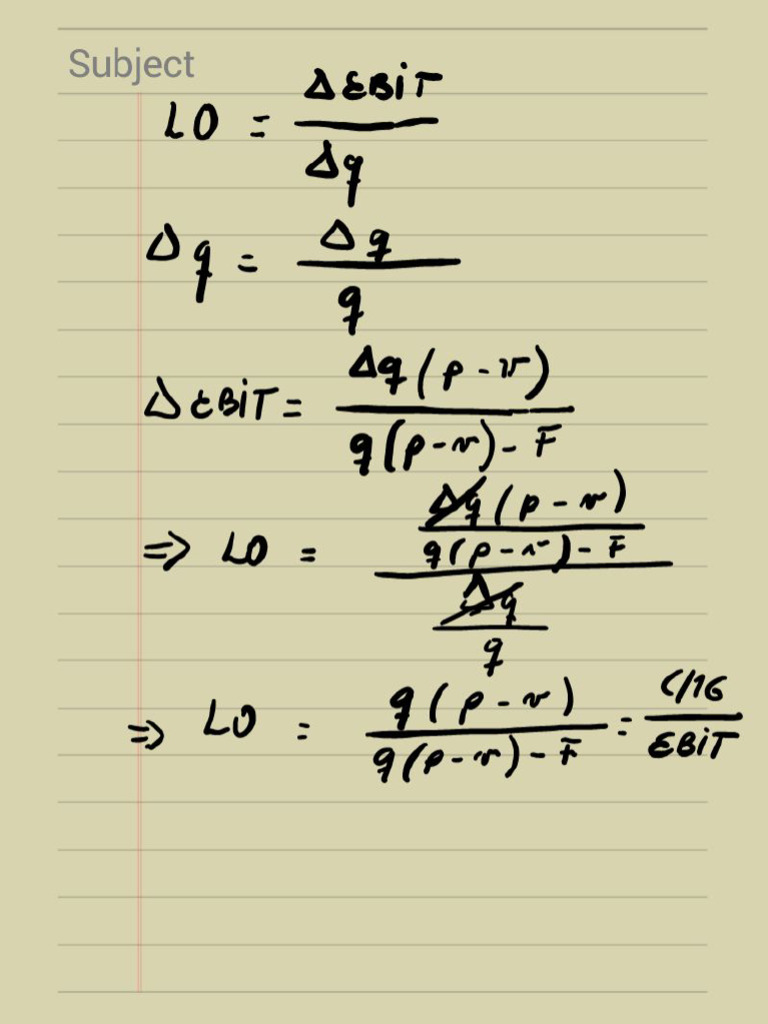 Subject
LO = ΔEBIT / Δq
Δq = Δq / q
ΔEBIT = Δq(p-v) / q(p-v)-F
=> LO = Δq(p-v) / q(p-v)-F / Δq / q
=> LO = q(p-v) / q(p-v)-F = C/16 / EBIT